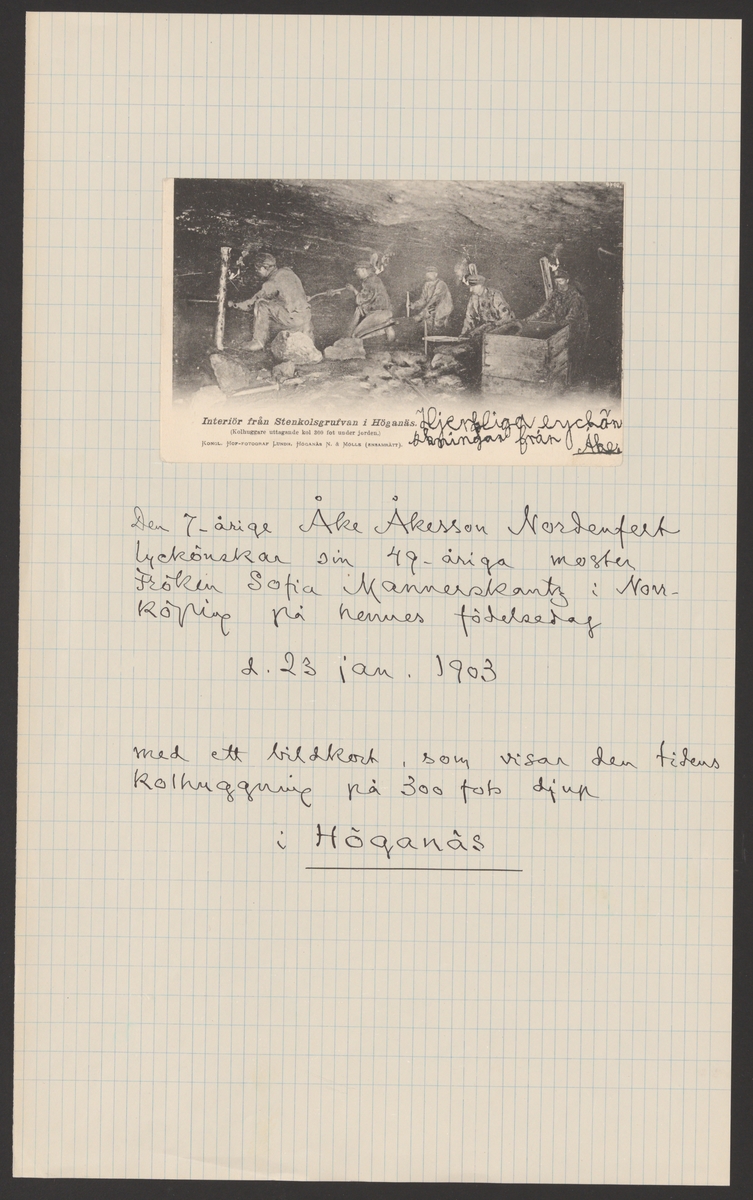 Interiör från Stenkolsgrufvan i Höganäs.
(Kolhuggare uttagande kol 300 fot under jorden.)
Kongl. Hof-fotograf Lundh. Höganäs N. & Mölle (ensamrätt).
Hjertliga lyckön
skningar från Åke
Den 7-årige Åke Åkesson Nordenfelt
lyckönskar sin 49-åriga moster
Fröken Sofia Mannerskantz i Norr-
köping på hennes födelsedag
d. 23 jan. 1903
med ett bildkort, som visar den tidens
kolhuggning på 300 fots djup
i Höganäs